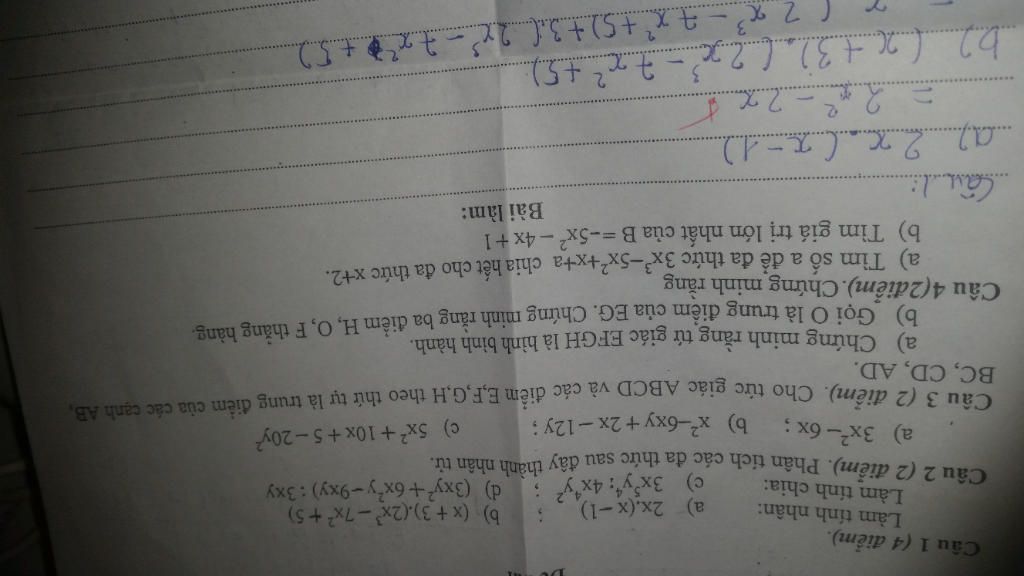 Câu 1 (4 điểm).
Làm tính nhân: a) 2x.(x–1) ; b) (x + 3).(2x³ – 7x² + 5)
Làm tính chia: c) 3x⁵y⁴ : 4x⁴y² ; d) (3xy² + 6x²y – 9xy) : 3xy
Câu 2 (2 điểm). Phân tích các đa thức sau đây thành nhân tử.
a) 3x² – 6x ; b) x² –6xy + 2x – 12y ; c) 5x² + 10x + 5 – 20y²
Câu 3 (2 điểm). Cho tức giác ABCD và các điểm E,F,G,H theo thứ tự là trung điểm của các cạnh AB,
BC, CD, AD.
a) Chứng minh rằng tứ giác EFGH là hình bình hành.
b) Gọi O là trung điểm của EG. Chứng minh rằng ba điểm H, O, F thẳng hàng.
Câu 4 (2điểm). Chứng minh rằng
a) Tìm số a để đa thức 3x³ –5x² +x+a chia hết cho đa thức x+2.
b) Tìm giá trị lớn nhất của B = –5x² – 4x + 1
Bài làm:
Câu 1:
a) 2x.(x – 1)
= 2x² – 2x
b) (x + 3).(2x³ – 7x² + 5)
= x(2x³ – 7x² + 5) + 3.(2x³ – 7x² + 5)